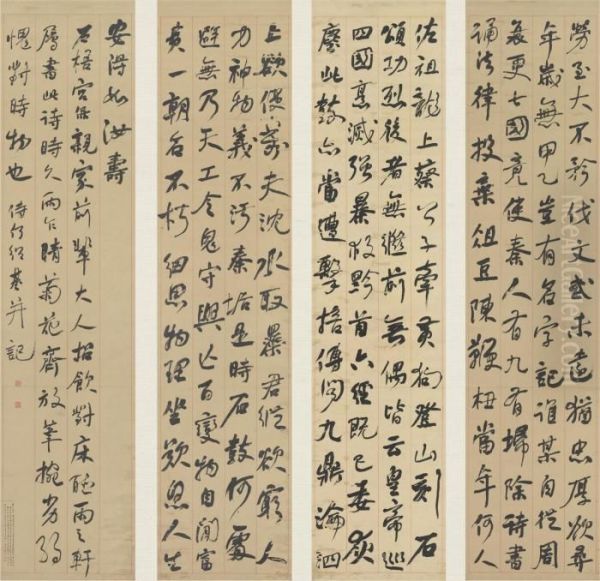 勞至大不矜伐文武未遠猶忠厚欲尋
年歲無甲乙豈有名字記誰某自從周
衰更七國竟使秦人有九有埽除詩書
誦法律投棄俎豆陳鞭杻當年何人
佐祖龍上蔡公子牽黃狗登山刻石
頌功烈後者無繼前無偶皆云皇帝巡
四國烹滅強暴救黔首六經既已委灰
塵此鼓亦當遭擊掊傳聞九鼎淪泗
上欲使萬夫沈水取暴君縱欲窮人
力神物義不污秦垢是時石鼓何處
避無乃天工令鬼守興亡百變物自閒富
貴一朝名不朽細思物理坐歎息人生
安得如汝壽
石梧宮保親家前輩大人招飲對床聽雨之軒
屬書此詩時久雨乍晴菊花齊放筆捥劣弱
愧對時物也 侍何紹基并記